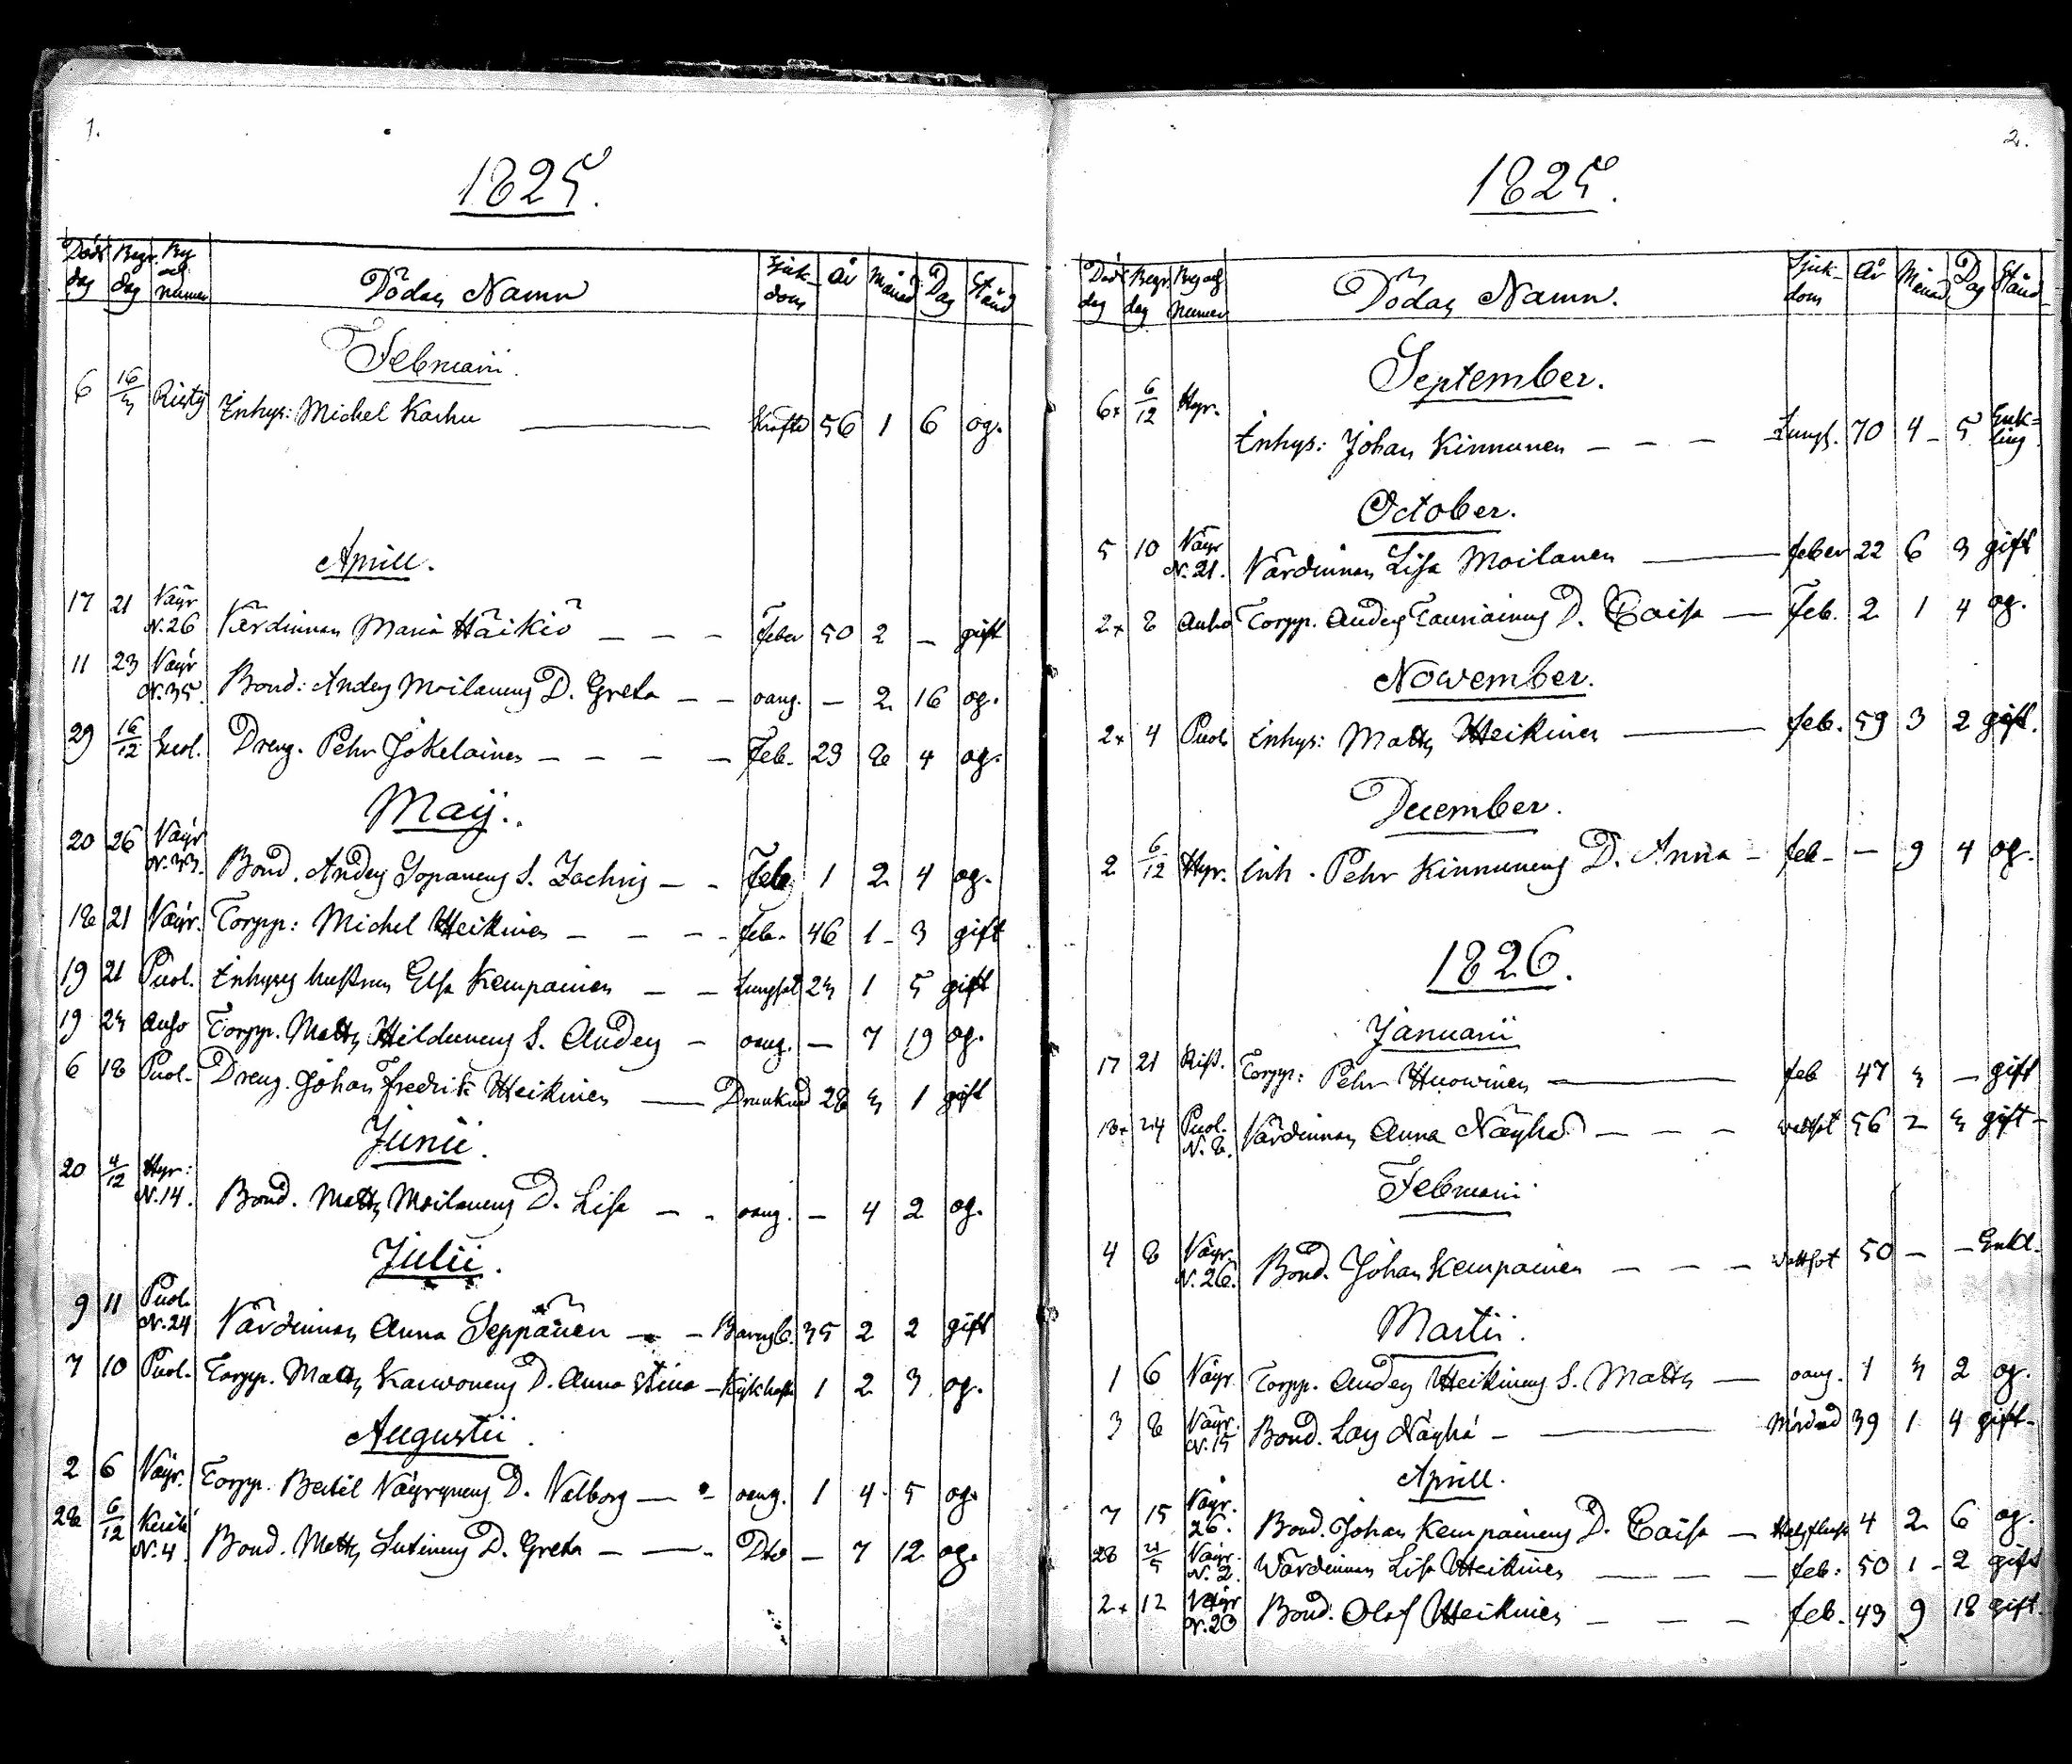 1.
1825.
Döds dag Begr. dag By och numer Dödas Namn Sjukdom År Månad Dag Stånd
Februarii.
6 16/3 Risty Inhys: Michel Karhu — Kräfta 56 1 6 og.
Aprill.
17 21 Näyr N.26 Värdinnan Maria Häikiö — — — Feber 50 2 — gift
11 23 Näyr N.35. Bond: Anders Moilanens D. Greta — — oang. — 2 16 og.
29 16/12 Dreng. Pehr Jokelainen — — — — Feb. 29 8 4 og.
Maij.
20 26 Näyr N.33. Bond. Anders Sopanens S. Zachris — - Feb. 1 2 4 og.
18 21 Näyr. Torpp: Michel Heikinen — — — - feb. 46 1 - 3 gift
19 21 Puol. Inhyses hustrun Elsa Kempainen — — Lungsot 23 1 5 gift
19 23 Anho Torpp. Matts Hildunens S. Anders — oang. — 7 19 og.
6 18 Puol. Dreng. Johan Fredrik Heikinen — Drunknad 28 3 1 gift
Junii.
20 4/12 Hyr: N.14. Bond. Matts Moilanens D. Lisa — - oang. — 4 2 og.
Julii.
9 11 Puol. N.24 Värdinnan Anna Seppänen — - Barnsb. 35 2 2 gift
7 10 Puol. Torpp. Matts Karwonens D. Anna Stina — Kikhosta 1 2 3 og.
Augustii.
2 6 Näyr. Torpp. Bertil Näyrynens D. Valborg — - oang. 1 4 5 og.
28 6/12 N.4 Bond. Matts Lutinens D. Greta — — - Dto — 7 12 og.
2.
1825.
Döds dag Begr. dag By och numer Dödas Namn. Sjukdom År Månad Dag Stånd
September.
6x 6/12 Hyr. Inhys: Johan Kinnunen — — — Lungs. 70 4 - 5 Enkling
October.
5 10 Näyr N.21. Värdinnan Lisa Moilanen — feber 22 6 3 gift
2x 8 Anho Torpp. Anders Tauriainens D. Caisa — Feb. 2 1 4 og.
November.
2x 4 Puol. Inhys: Matts Heikinen — feb. 59 3 2 gift.
December.
2 6/12 Hyr. Inh. Pehr Kinnunens D. Anna - feb. — 9 4 og.
1826.
Januarii
17 21 Rist. Torpp: Pehr Huowinen — feb 47 3 — gift
18x 24 Puol. N.8. Värdinnan Anna Näyhä — — — wattsot 56 2 3 gift -
Februarii
4 8 Näyr. N.26. Bond. Johan Kempainen — — — wattsot 50 — — Enkl.
Martii.
1 6 Näyr. Torpp. Anders Heikinens S. Matts — oang. 1 3 2 og.
3 8 Näyr. N.15 Bond. Lars Näyhä - — Mördad 39 1 4 gift -
Aprill.
7 15 Näyr. 26. Bond. Johan Kempainens D. Caisa — Halsfluss 4 2 6 og.
28 4/5 Näyr. N.2. Wärdinnan Lisa Heikinen — — — feb: 50 1 - 2 gift
2x 12 Näyr N.20 Bond. Olof Heikinen — — — feb. 49 9 18 gift.